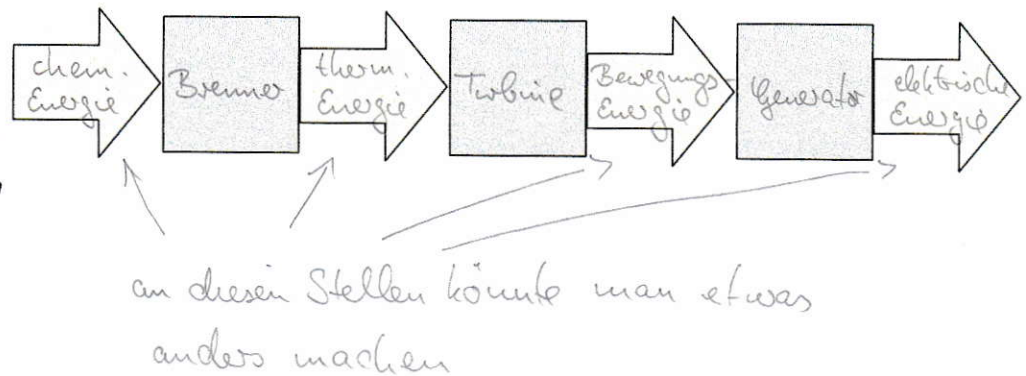 chem.
Energie
Brenner
therm.
Energie
Turbine
Bewegungs-
Energie
Generator
elektrische
Energie
an diesen Stellen könnte man etwas
anders machen